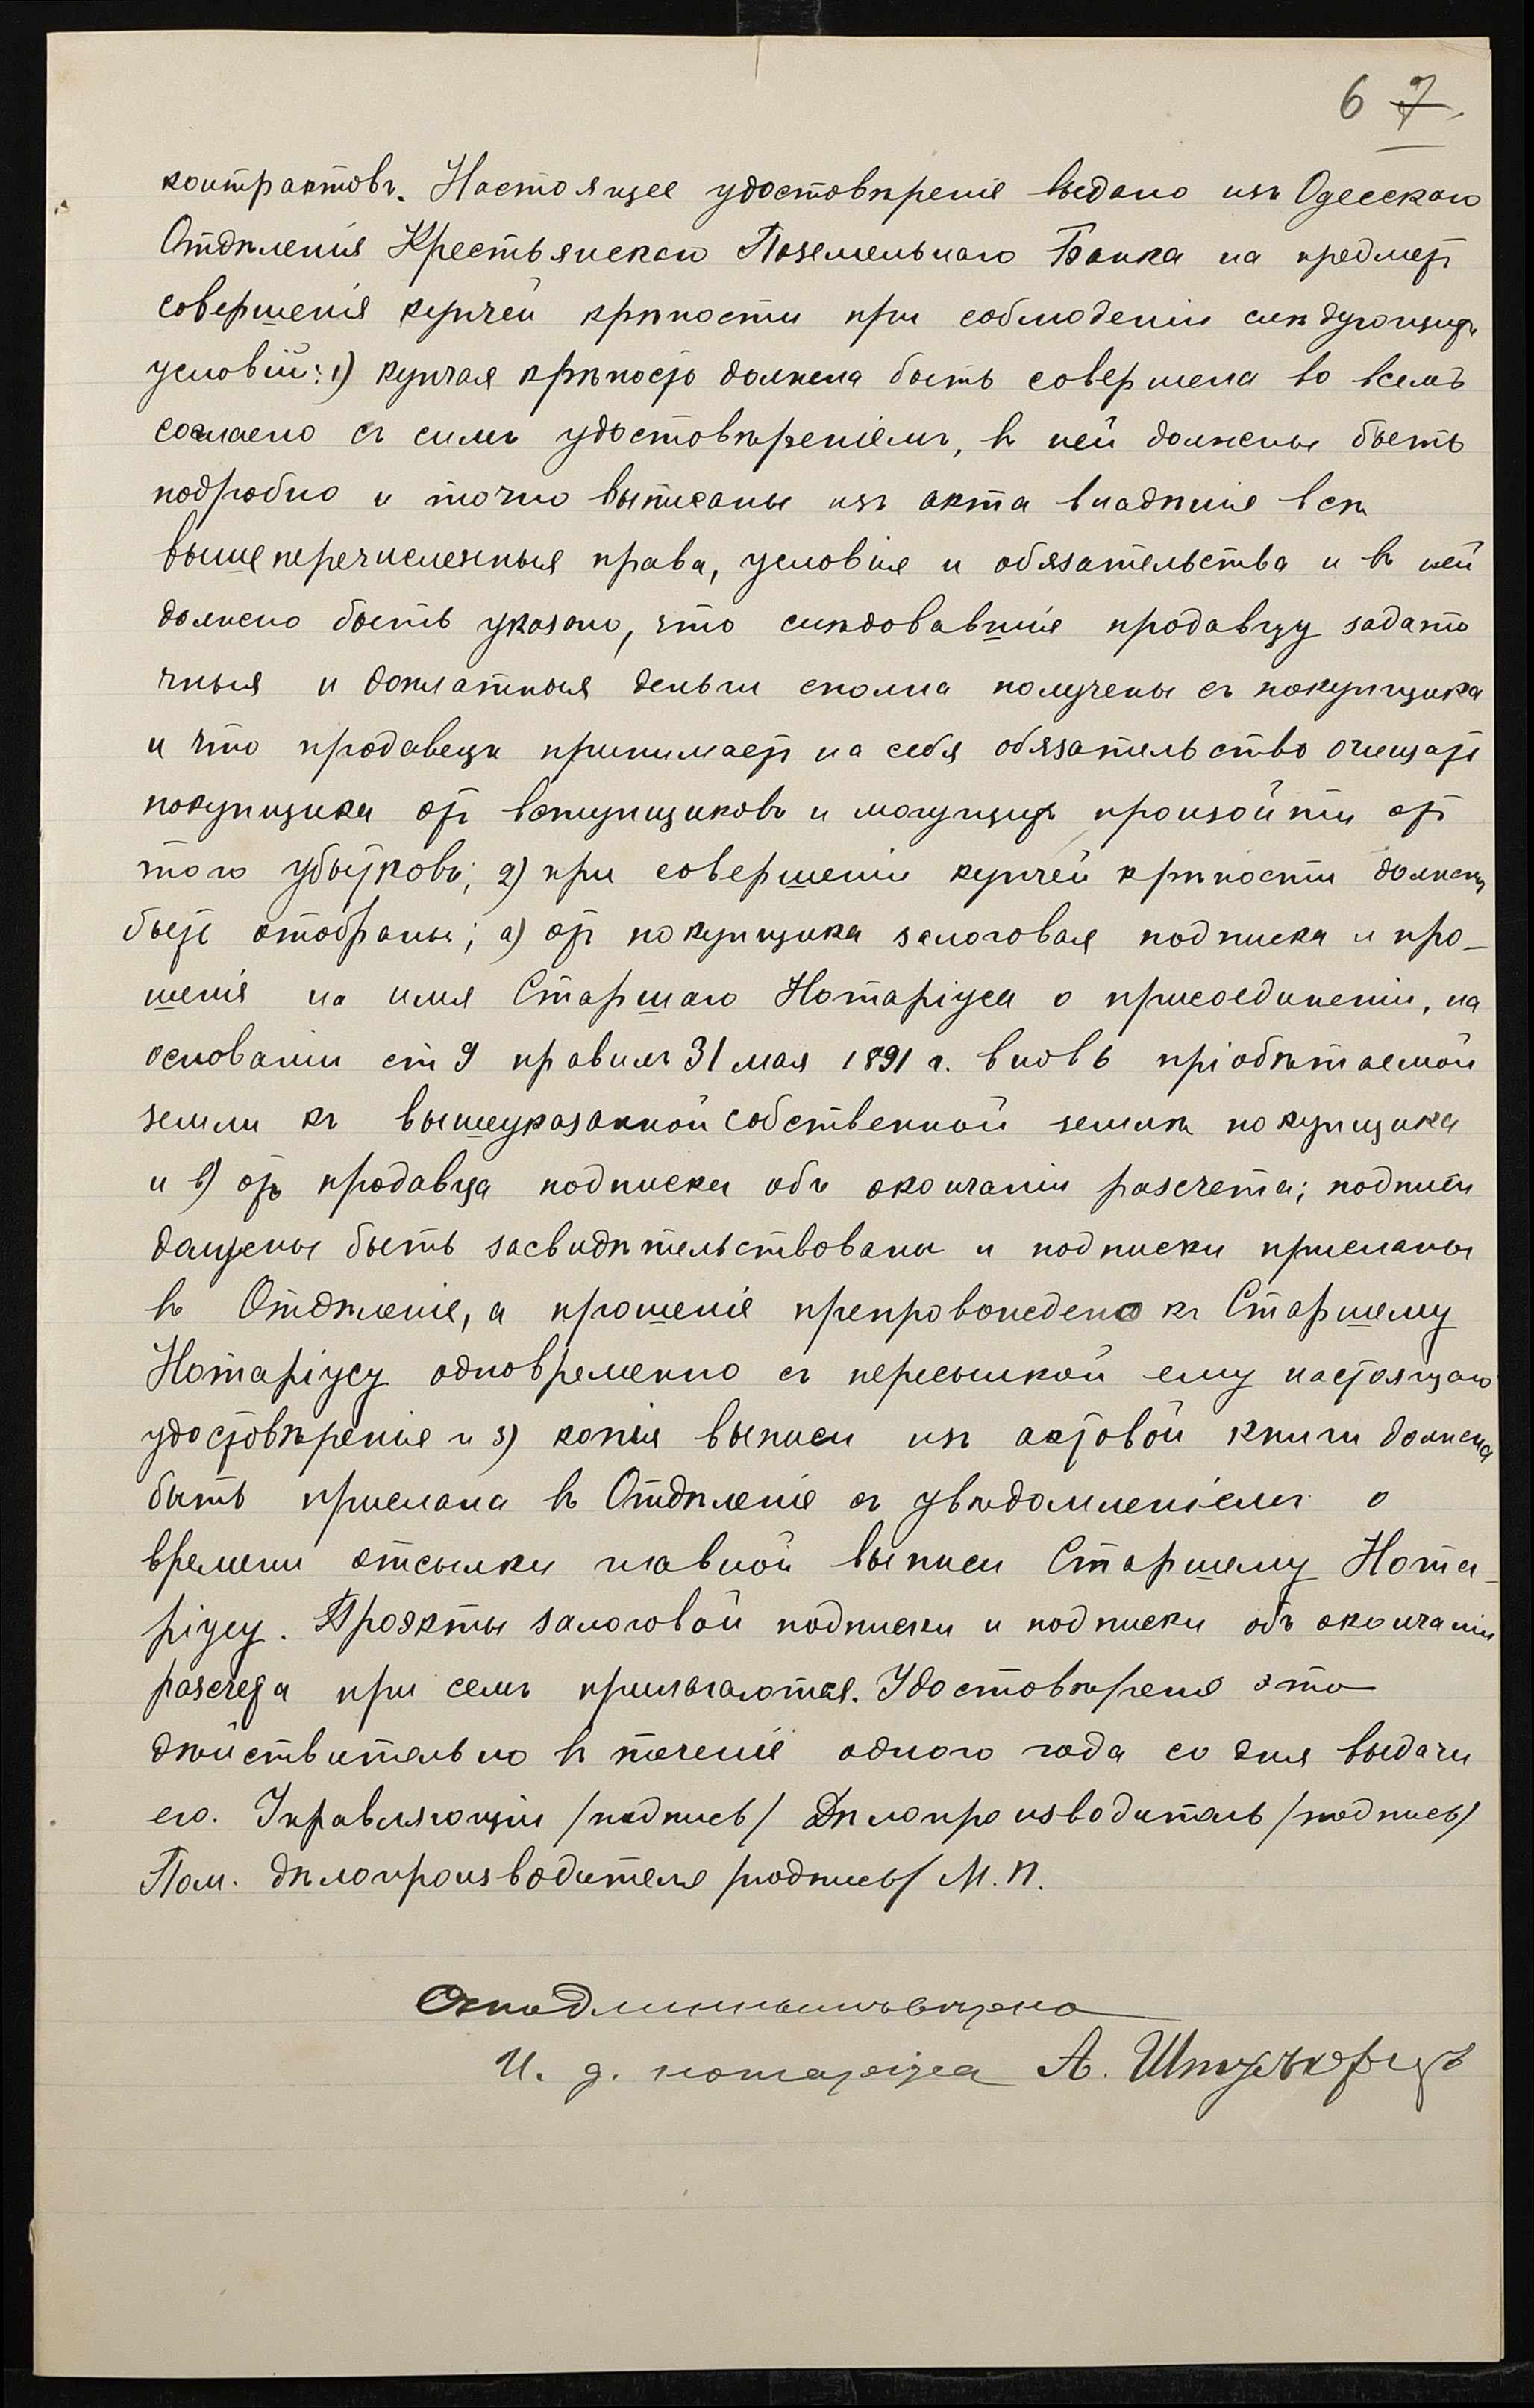 6 7.
контрактовъ. Настоящее удостовѣреніе выдано изъ Одесскаго
Отдѣленія Крестьянскаго Поземельнаго Банка на предметъ
совершенія купчей крѣпости при соблюденіи слѣдующихъ
условій: 1) купчая крѣпость должна быть совершена во всемъ
согласно съ симъ удостовѣреніемъ, въ ней должны быть
подробно и точно выписаны изъ акта владѣнія всѣ
вышеперечисленныя права, условія и обязательства и въ ней
должно быть указано, что слѣдовавшія продавцу задато
чныя и доплатныя деньги сполна получены съ покупщика
и что продавецъ принимаетъ на себя обязательство очищать
покупщика отъ вступщиковъ и могущихъ произойти отъ
того убытковъ; 2) при совершеніи купчей крѣпости должны
быть отобраны; а) отъ покупщика залоговая подписка и про-
шенія на имя Старшаго Нотаріуса о присоединеніи, на
основаніи ст 9 правилъ 31 мая 1891 г. вновь пріобѣтаемой
земли къ вышеуказанной собственной землѣ покупщика
и в) отъ продавца подписки объ окончаніи разсчета; подписи
должны быть засвидѣтельствованы и подписки присланы
въ Отдѣленіе, а прошеніе препровождено къ Старшему
Нотаріусу одновременно съ пересылкой ему настоящаго
удостовѣренія и 3) копія выписи изъ актовой книги должна
быть прислана въ Отдѣленіе съ увѣдомленіемъ о
времени отсылки главной выписи Старшему Нота-
ріусу. Проэкты залоговой подписки и подписки объ окончаніи
разсчета при семъ прилагаются. Удостовѣреніе это
дѣйствительно въ теченіе одного года со дня выдачи
его. Управляющій /подпись/ Дѣлопроизводитель /подпись/
Пом. дѣлопроизводителя /подпись/ М. П.
Съ подлиннымъ вѣрно
И. д. нотаріуса А.